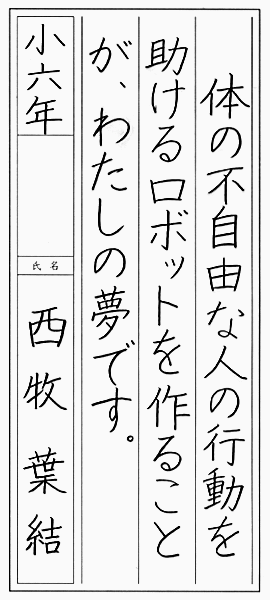 体の不自由な人の行動を
助けるロボットを作ること
が、わたしの夢です。
小六年
氏名
西牧 葉結